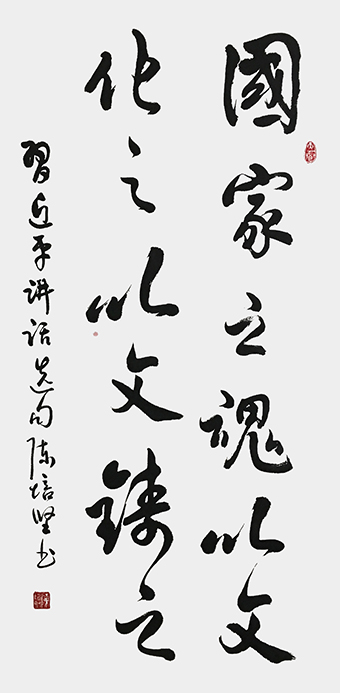 國家之魂以文
化之以文鑄之
習近平讲话选句陈培坚书